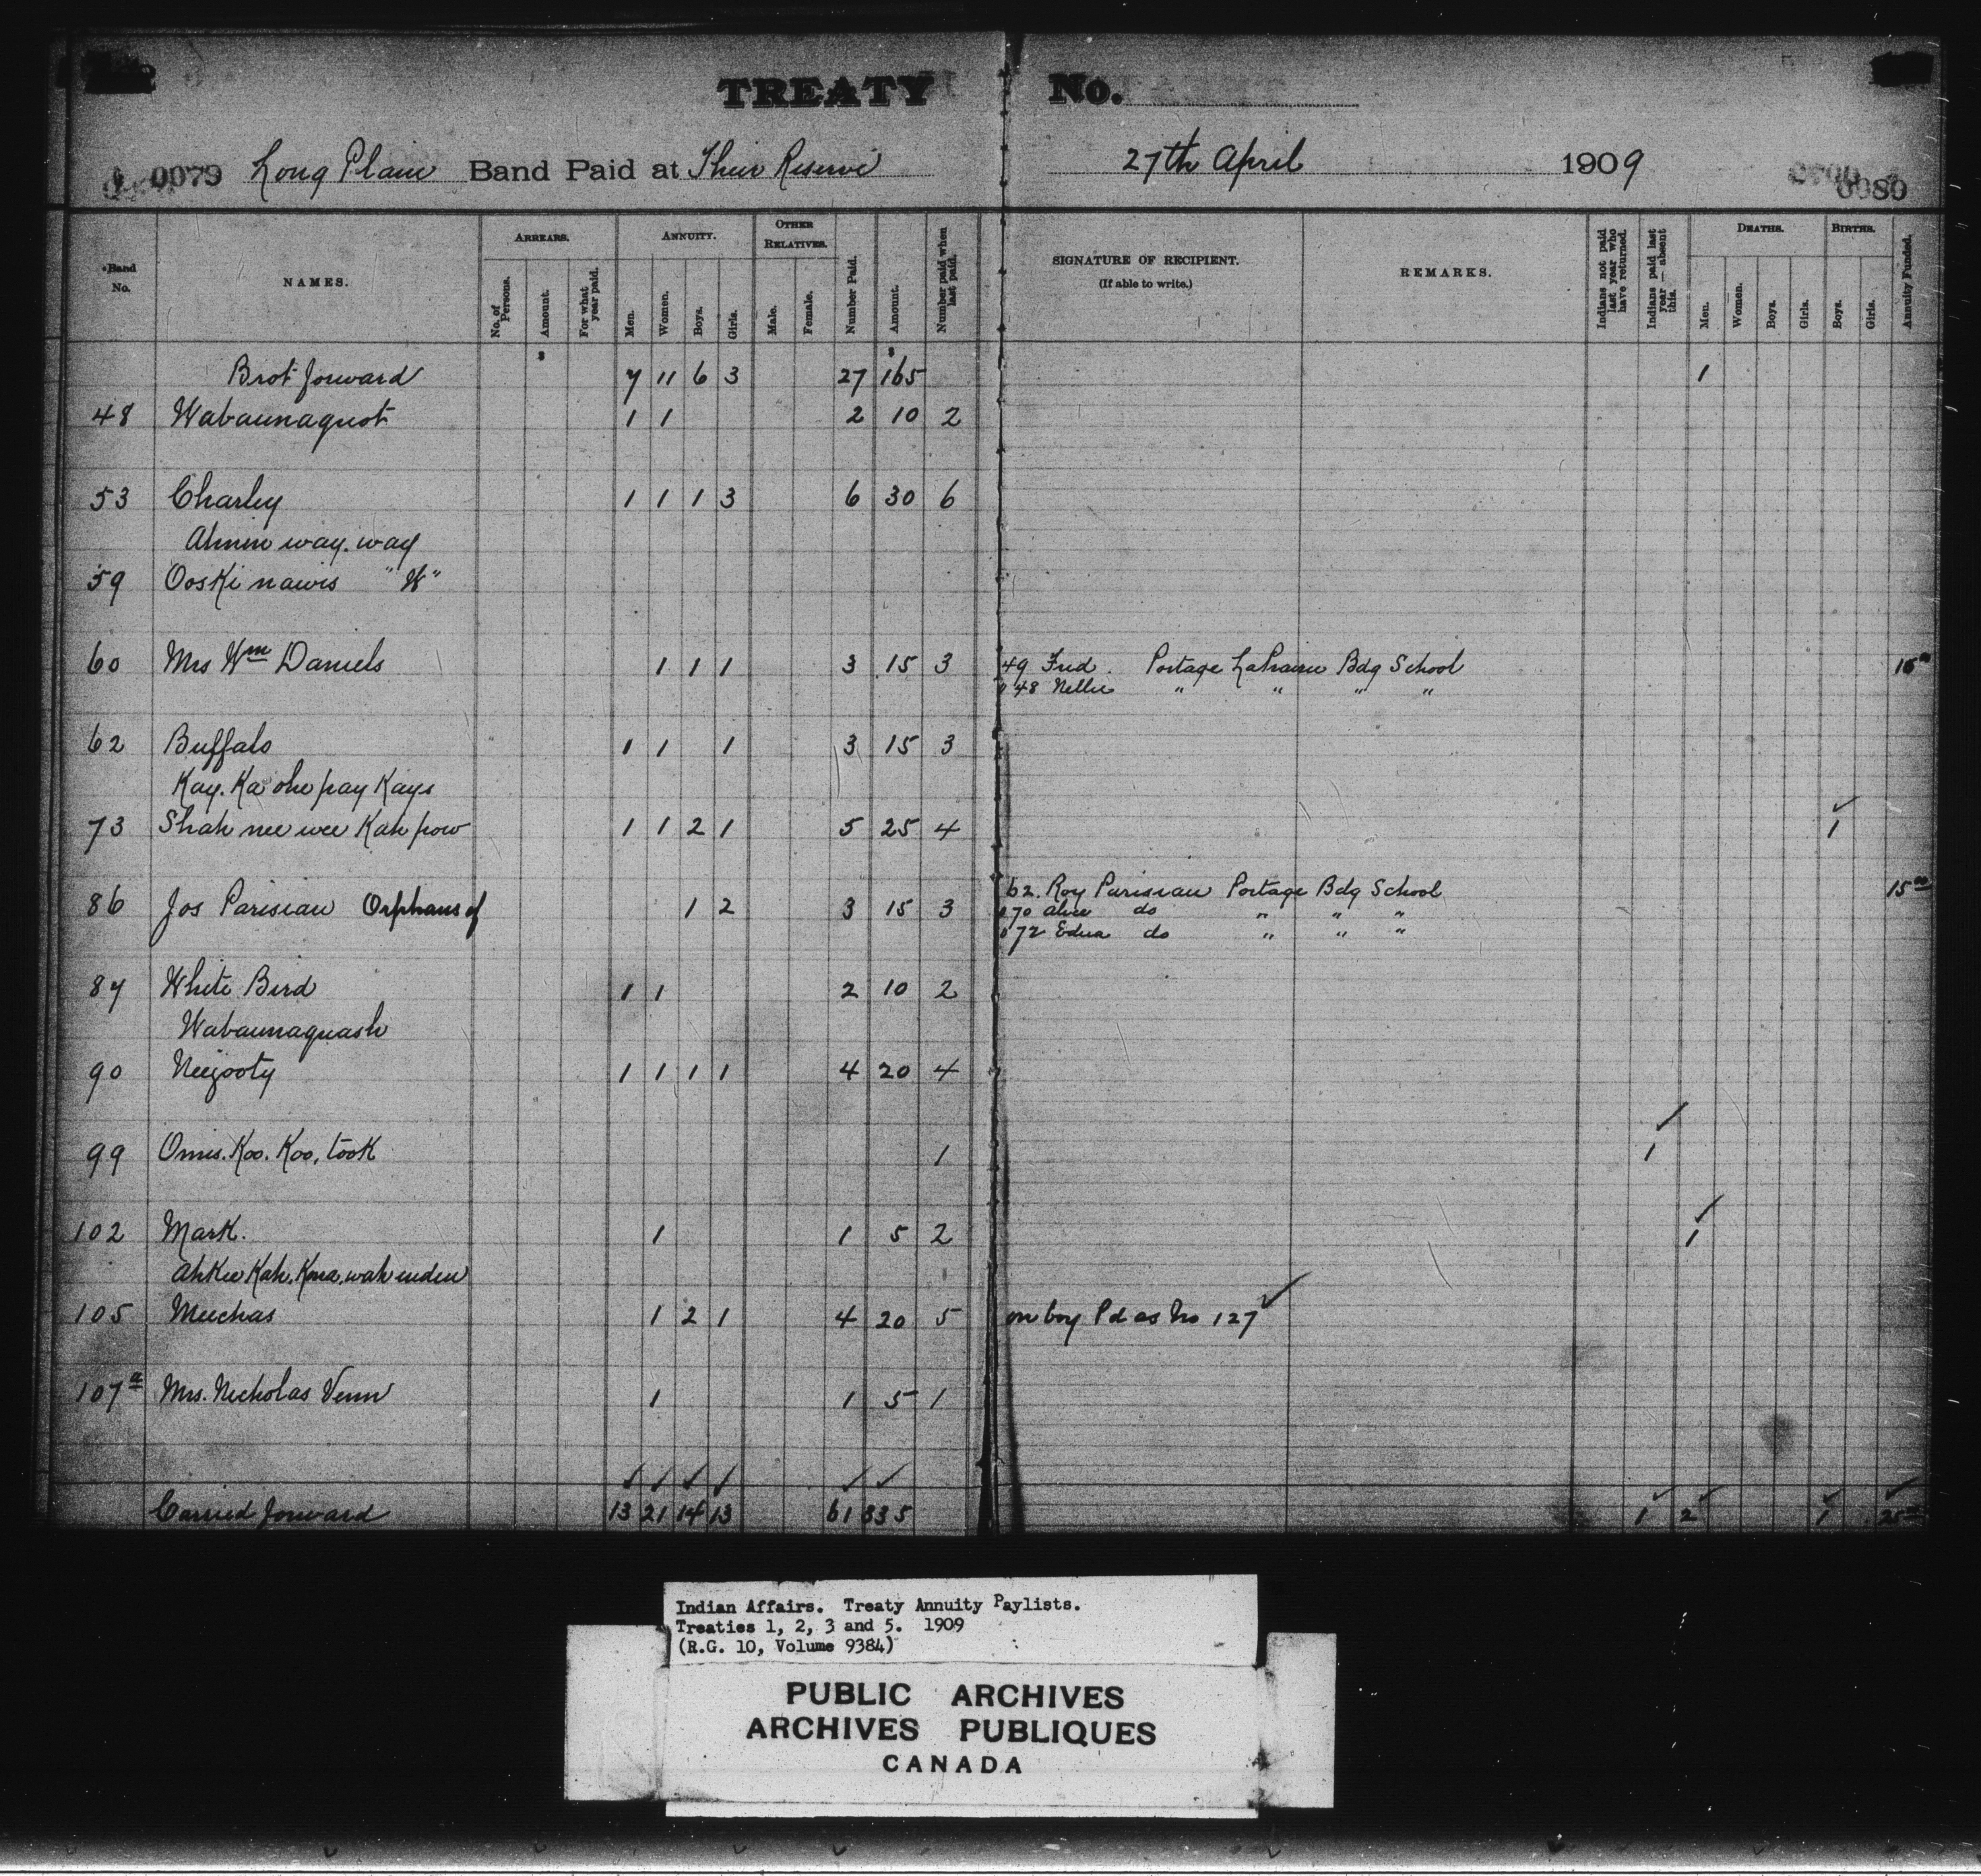 TREATY No.
0079 Long Plain Band Paid at Their Reserve 27th April 1909 0080
Band No. NAMES. ARREARS. No. of Persons. Amount. For what year paid. ANNUITY. Men. Women. Boys. Girls. OTHER RELATIVES. Male. Female. Number Paid. Amount. Number paid when last paid. SIGNATURE OF RECIPIENT. (If able to write.) REMARKS. Indians not paid last year who have returned. Indians paid last year — absent this. DEATHS. Men. Women. Boys. Girls. BIRTHS. Boys. Girls. Annuity Funded.
$ $
Brot forward 7 11 6 3 27 165 1
48 Wabaunaquot 1 1 2 10 2
53 Charley 1 1 1 3 6 30 6
way. way
59 Ooski nawis "W"
60 Mrs Wm Daniels 1 1 1 3 15 3 49 Fred. Portage LaPrairie Bdg School
048 Nellie " " " "
62 Buffalo 1 1 1 3 15 3
Kay. Ka oke pay Kays
73 Shah nee wee Kah pow 1 1 2 1 5 25 4 1
86 Jos Parisian Orphans of 1 2 3 15 3 62. Roy Parisian Portage Bdg School 15
070 Alice do " " "
072 Edna do " " "
87 White Bird 1 1 2 10 2
Wabaunaquash
90 Neezooty 1 1 1 1 4 20 4
99 Omis. Koo. Koo. took 1 1
102 Mark. 1 1 5 2 1
105 Meechas 1 2 1 4 20 5 on boy Pd as No 127
107a Mrs. Nicholas Venn 1 1 5 1
Carried forward 13 21 14 13 61 335 1 2 1
Indian Affairs. Treaty Annuity Paylists.
Treaties 1, 2, 3 and 5. 1909
(R.G. 10, Volume 9384)
PUBLIC ARCHIVES
ARCHIVES PUBLIQUES
CANADA